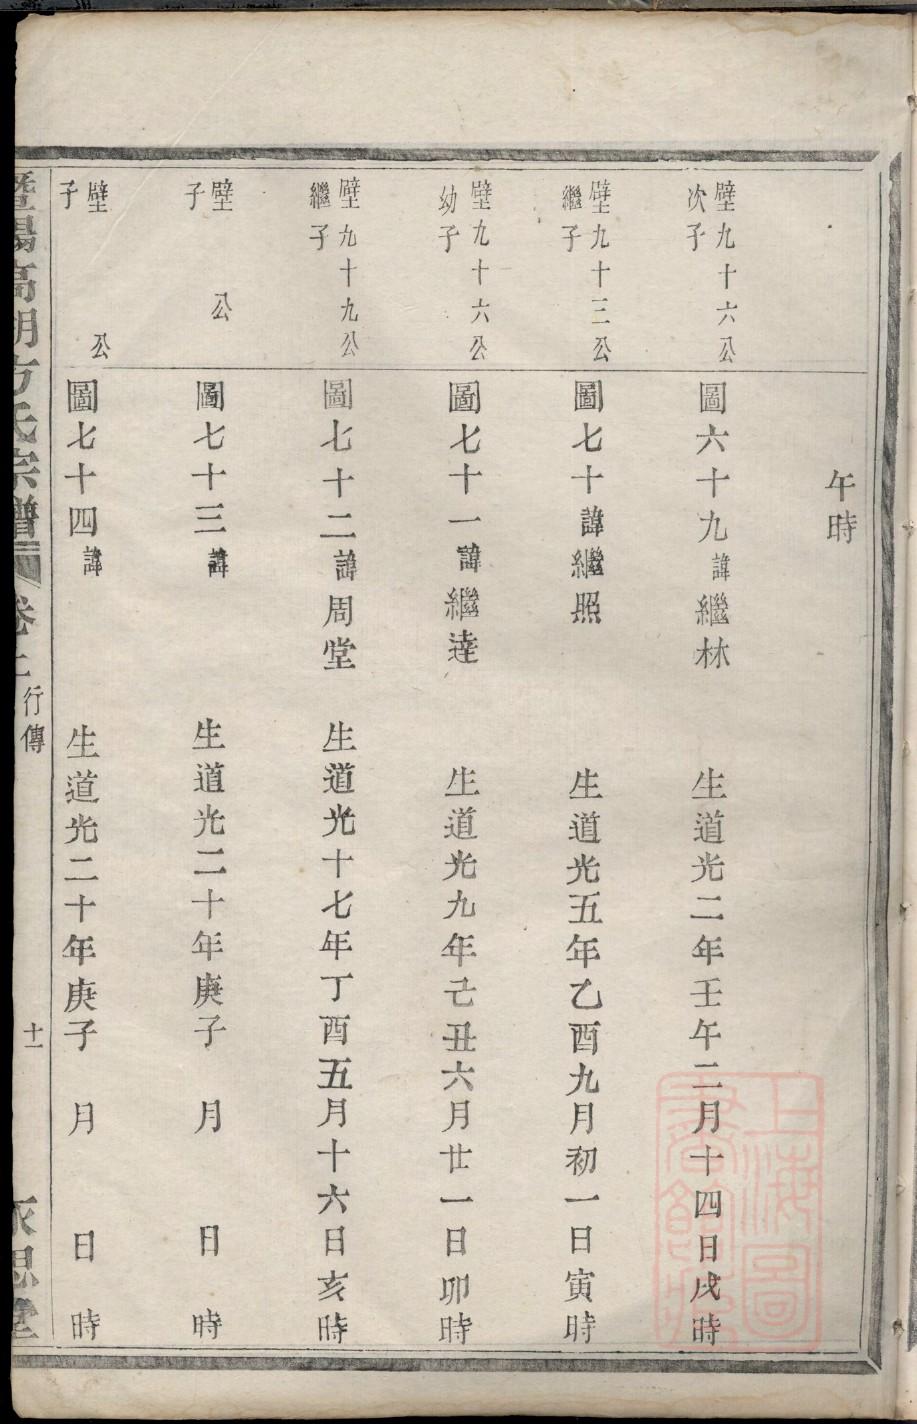 午時
壁九十六公
次子
圖六十九諱繼林 生道光二年壬午二月十四日戌時
壁九十三公
繼子
圖七十諱繼照 生道光五年乙酉九月初一日寅時
壁九十六公
幼子
圖七十一諱繼達 生道光九年己丑六月廿一日卯時
壁九十九公
繼子
圖七十二諱周堂 生道光十七年丁酉五月十六日亥時
壁 公
子
圖七十三諱 生道光二十年庚子 月 日 時
壁 公
子
圖七十四諱 生道光二十年庚子 月 日 時
暨陽高湖方氏宗譜 卷 行傳 十一 永思堂
上海圖
書館藏